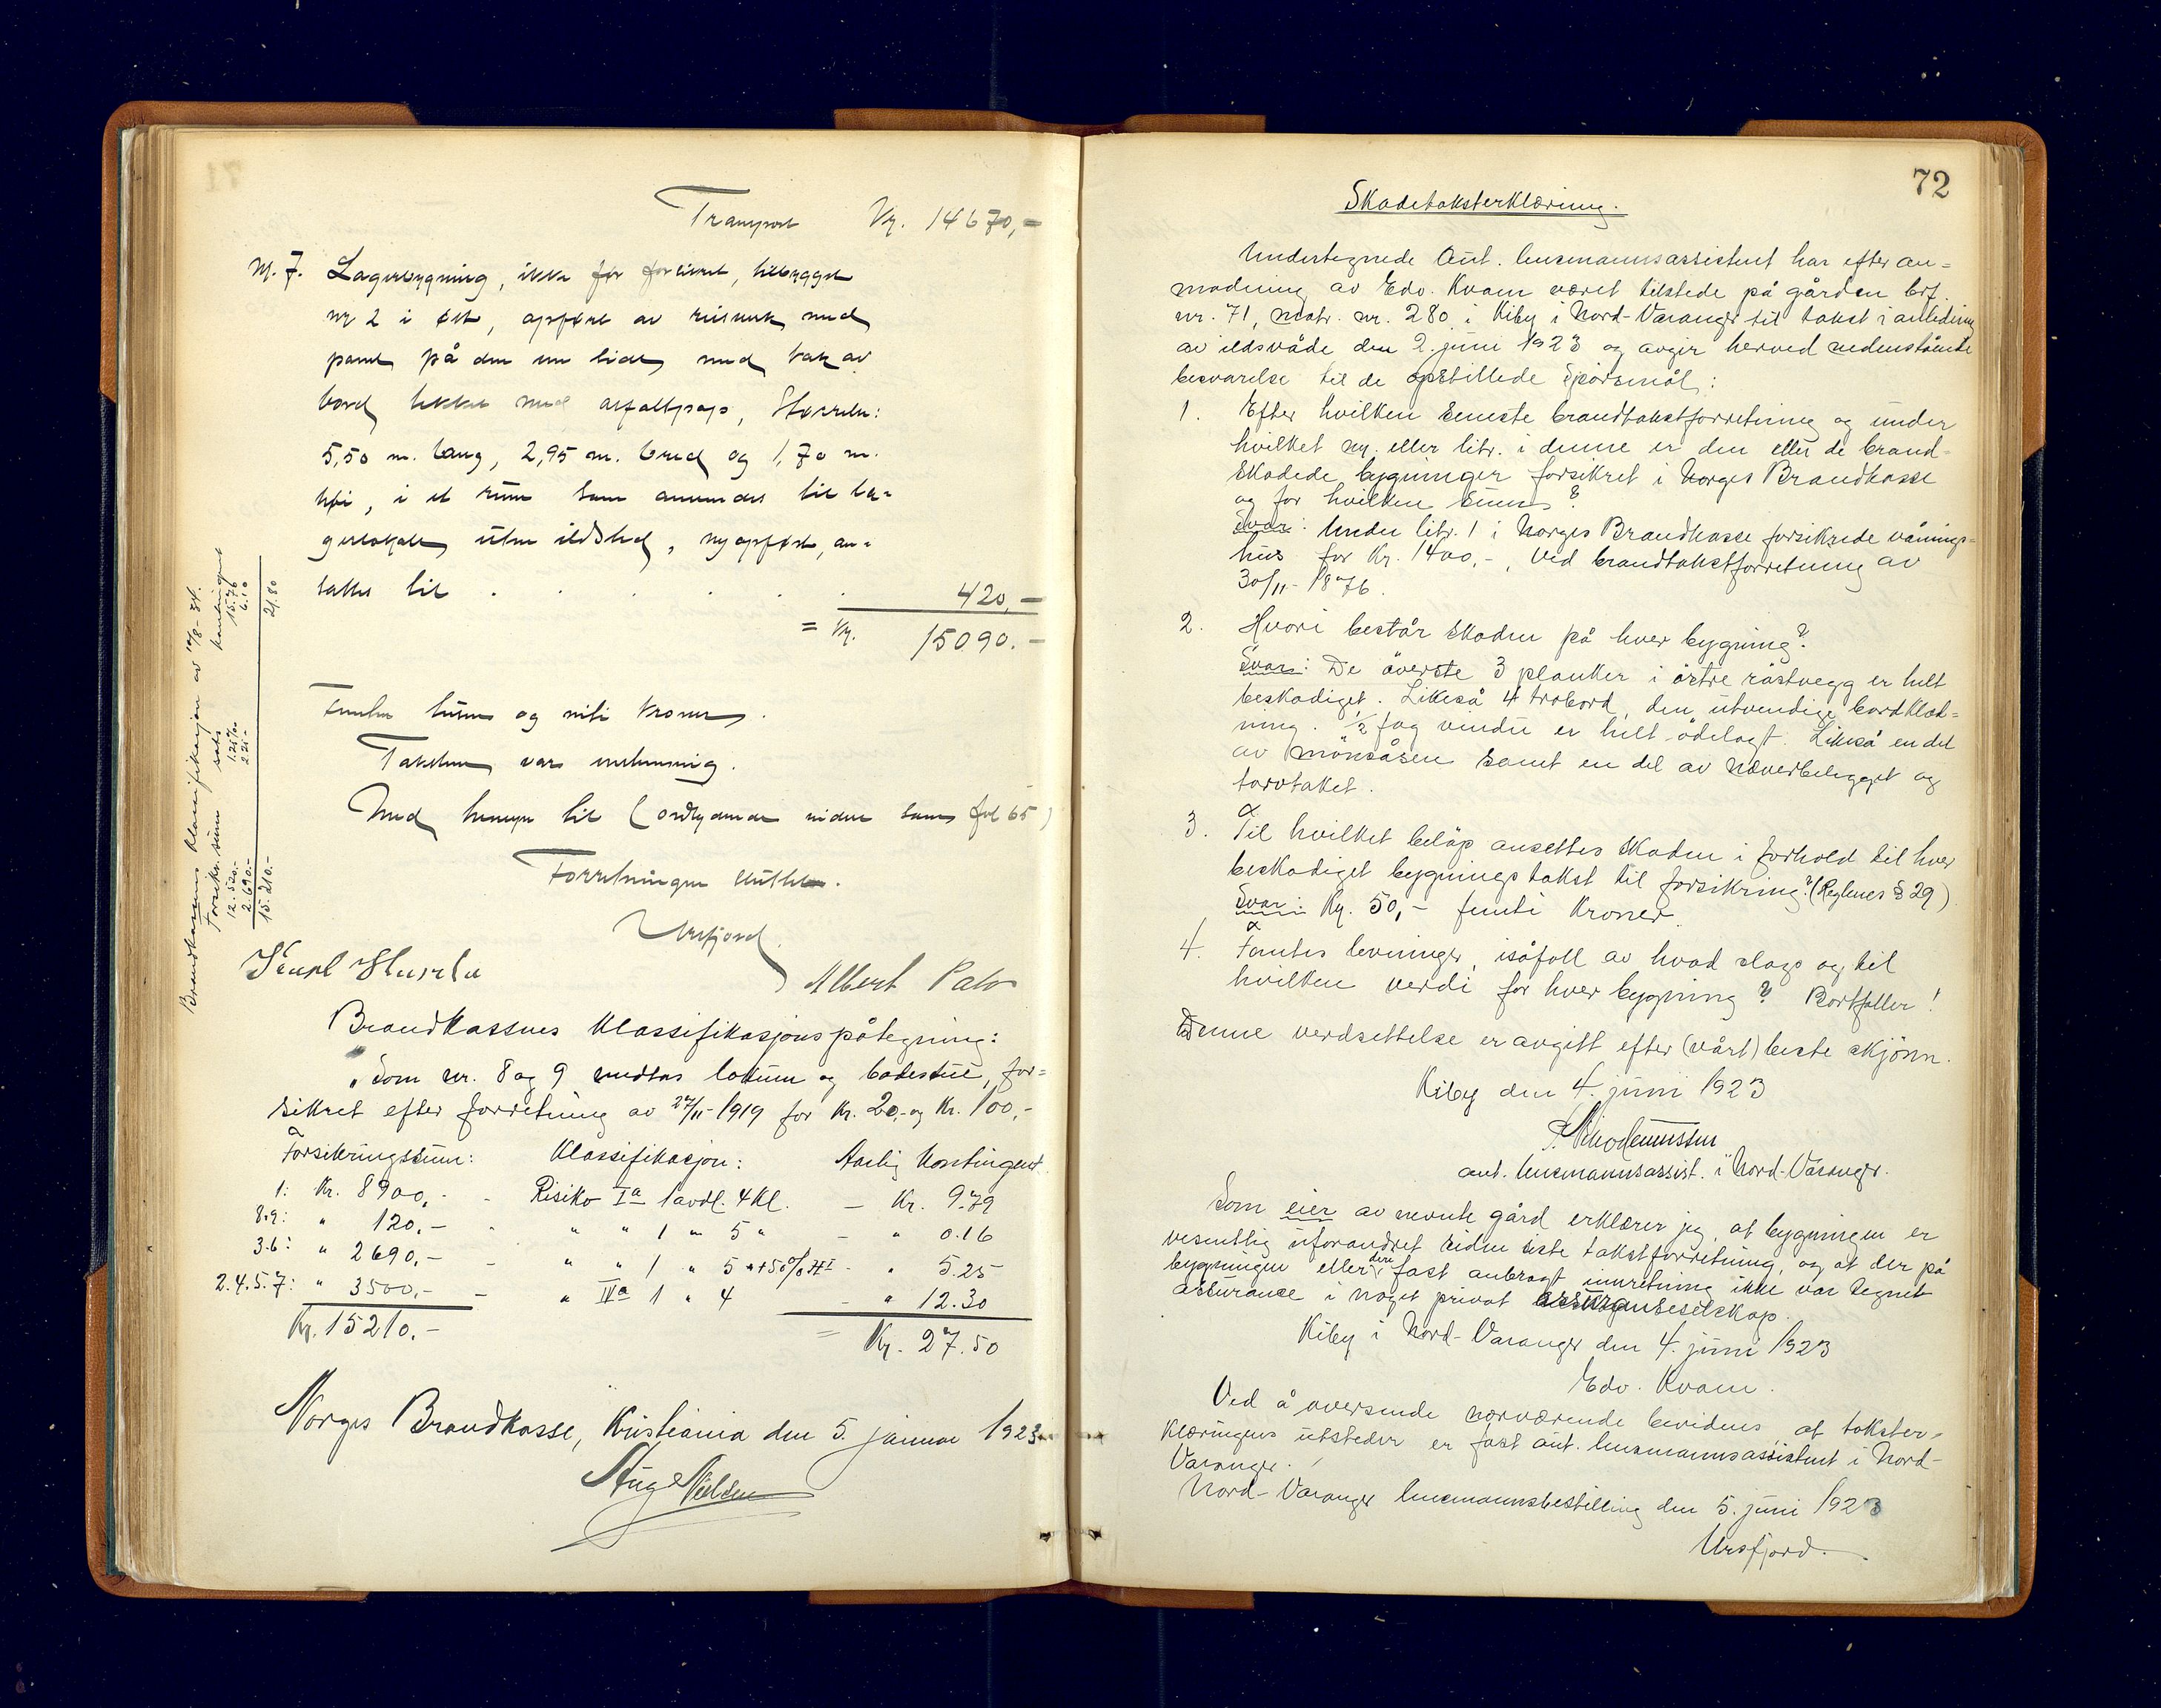 Transport Kr. 14670,-
Nr. 7. Lagerbygning, ikke før forsikret, tilbygget
nr 2 i øst, opført av reisverk med
panel på den ene side, med tak av
bord tekket med asfaltpapp, Størrelse:
5,50 m. lang, 2,95 m. bred og 1,70 m.
høi, i et rum som anvendes til la-
gerlokale, uten ildsted, nyopført, an-
sattes til . . . . . . 420,-
= Kr. 15090.-
Femten tusen og nitti kroner.
Taksten var enstemmig.
Med hensyn til (ordlydende videre som fol 65)
Forretningen sluttet.
Ursfjord.
Albert Palo
Brandkassens klassifikasjon av 10/8-34.
Forsikr. sum sats kontingent
12.520.- 1.25 ‰ 15.76
2.690.- 2.25 - 6.10
15.210.- 21.80
Brandkassens Klassifikasjonspåtegning:
"Som nr. 8 og 9 medtas lokum og badestue, for-
sikret efter forretning av 27/11-1919 for Kr. 20,- og Kr. 100,-
Forsikringssum: Klassifikasjon: Aarlig Kontingent.
1: Kr. 8900,- - Risiko Ia 1 avdl. 4 Kl. - Kr. 9.79
8.9: " 120.- - " " 1 " 5 " - " 0.16
3.6: " 2690,- - " " 1 " 5 " +50% HI - " 5.25
2.4.5.7: " 3500,- - " IVa 1 " 4 - " 12.30
Kr. 15210.- = Kr. 27.50
Norges Brandkasse, Kristiania den 5. januar 1923
Aug Nielsen
72
Skadetaksterklæring.
Undertegnede Aut. lensmannsassistent har efter an-
modning av Edv. Kvam været tilstede på gården brf.
nr. 71, matr. nr. 280 i Kiby i Nord-Varanger til takst i anledning
av ildsvåde den 2. juni 1923 og avgir herved nedenstående
besvarelse til de opstillede spörsmål:
1. Efter hvilken seneste brandtakstforretning og under
hvilket nr. eller litr. i denne er den eller de brand-
skadede bygninger forsikret i Norges Brandkasse
og for hvilken sum?
Svar: Under litr. 1 i Norges Brandkasse forsikrede vånings-
hus for Kr. 1400,-, ved brandtakstforretning av
30/11-1876.
2. Hvori består skaden på hver bygning?
Svar: De överste 3 planker i östre röstvegg er helt
beskadiget. Likeså 4 trobord, den utvendige bordklæd-
ning. 1/2 fag vindu er helt ödelagt. Likeså en del
av mönsåsen samt en del av næverbelegget og
torvtaket.
3. Til hvilket belöp ansettes skaden i forhold til hver
beskadiget bygnings takst til forsikring? (Reglenes § 29)
Svar: Kr. 50,- femti Kroner.
4. Fantes levninger, isåfall av hvad slags og til
hvilken verdi for hver bygning? Bortfaller!
Denne verdsettelse er avgitt efter (vårt) beste skjönn.
Kiby den 4. juni 1923
aut. lensmannsassist. i Nord-Varanger.
Som eier av nevnte gård erklærer jeg, at bygningen er
vesentlig uforandret siden siste takstforretning, og at der på
bygningen eller dens fast anbragt innretning ikke var tegnet
assurance i noget privat assuranseselskap.
Kiby i Nord-Varanger den 4. juni 1923
Edv. Kvam.
Ved å oversende nærværende bevidnes, at takster-
klæringens utsteder er fast aut. lensmannsassistent i Nord-
Varanger.
Nord-Varanger lensmannsbestilling den 5. juni 1923
Ursfjord.